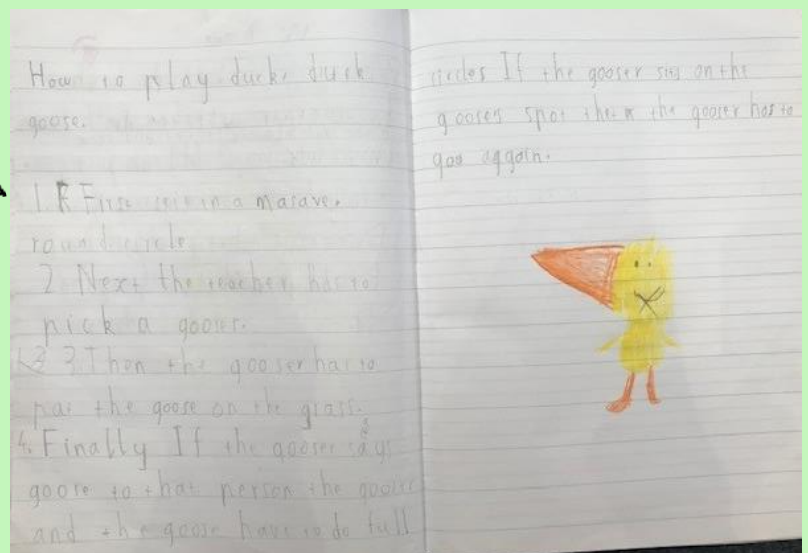 How to play duck duck
goose.
1. First in a masave.
round circle
2 Next the teacher has to
pick a gooser.
3. Then the gooser has to
pat the goose on the grass.
4. Finally If the gooser says
goose to that person the gooser
and the goose have to do full
circles If the gooser sits on the
gooses spot then the gooser has to
aggain.